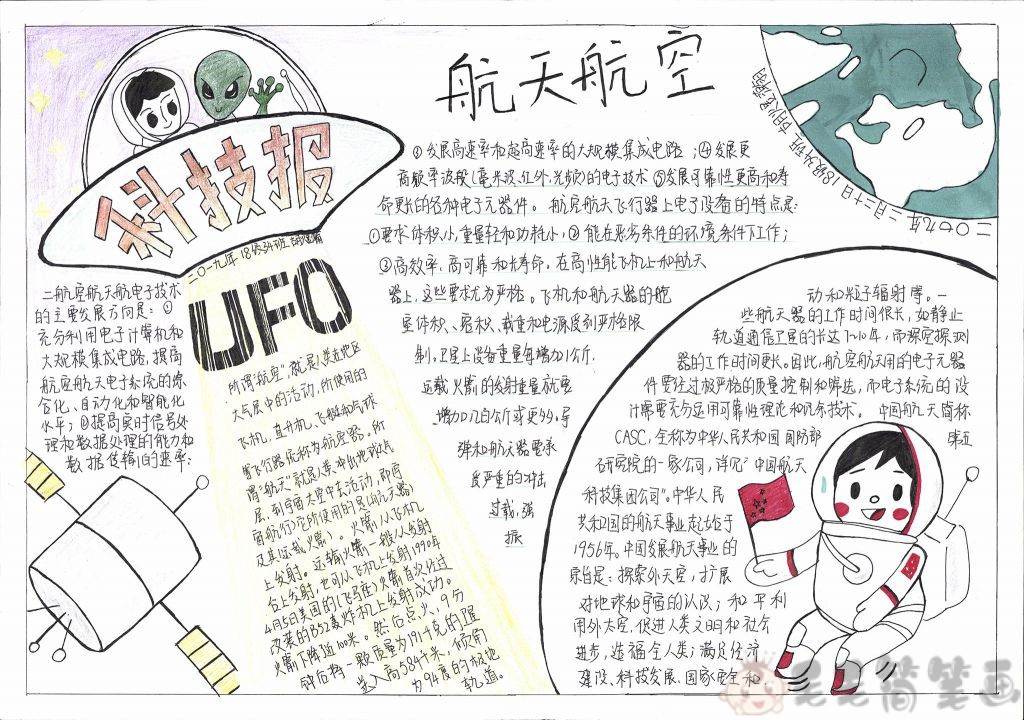 航天航空
科技报
二〇一九年18级34班
UFO
二航空航天航电子技术
的主要发展方向是:①
充分利用电子计算机和
大规模集成电路,提高
航空航天电子系统的综
合化、自动化和智能化
水平;②提高实时信号处
理和数据处理的能力和
数据传输的速率;
③发展高速率和超高速率的大规模集成电路;④发展更
高频率波段(毫米波、红外、光频)的电子技术⑤发展可靠性更高和寿
命更长的各种电子元器件。航空航天飞行器上电子设备的特点是:
①要求体积小,重量轻和功耗小;②能在恶劣条件的环境条件下工作;
③高效率、高可靠和长寿命。在高性能飞机上和航天
器上,这些要求尤为严格。飞机和航天器的舱
室体积、容积、载重和电源受到严格限
制,卫星上设备重量每增加1公斤,
运载火箭的发射重量就要
增加几百公斤或更多。导
弹和航天器要承
受严重的冲击
过载、强
振
动和粒子辐射等。一
些航天器的工作时间很长,如静止
轨道通信卫星的长达7~10年,而深空探测
器的工作时间更长。因此,航空航天用的电子元器
件要经过极严格的质量控制和筛选,而电子系统的设
计需要充分运用可靠性理论和冗余技术。中国航天简称
CASC,全称为中华人民共和国国防部第五
研究院的一家公司,详见"中国航天
科技集团公司"。中华人民
共和国的航天事业起始于
1956年。中国发展航天事业的
宗旨是:探索外太空,扩展
对地球和宇宙的认识;和平利
用外太空,促进人类文明和社会
进步,造福全人类;满足经济
建设、科技发展、国家安全和
所谓"航空"就是人类在地区
大气层中的活动,所使用的
飞机、直升机、飞艇和气球
等飞行器统称为航空器。所
谓"航天"就是人类冲出地球大气
层,到宇宙太空中去活动,即宇
宙航行,它所使用的是航天器
及其运载火箭。火箭从飞机
上发射。运输火箭一般从发射
台上发射,也可从飞机上发射1990年
4月5日美国的"飞马座"火箭首次经过
改装的B52轰炸机上发射成功。
火箭下降近100米。然后点火、9分
钟后将一颗质量为191千克的卫星
送入高584千米、倾角
为94度的极地
轨道。
二〇一九年
一月二十日 18级34班
毛毛简笔画